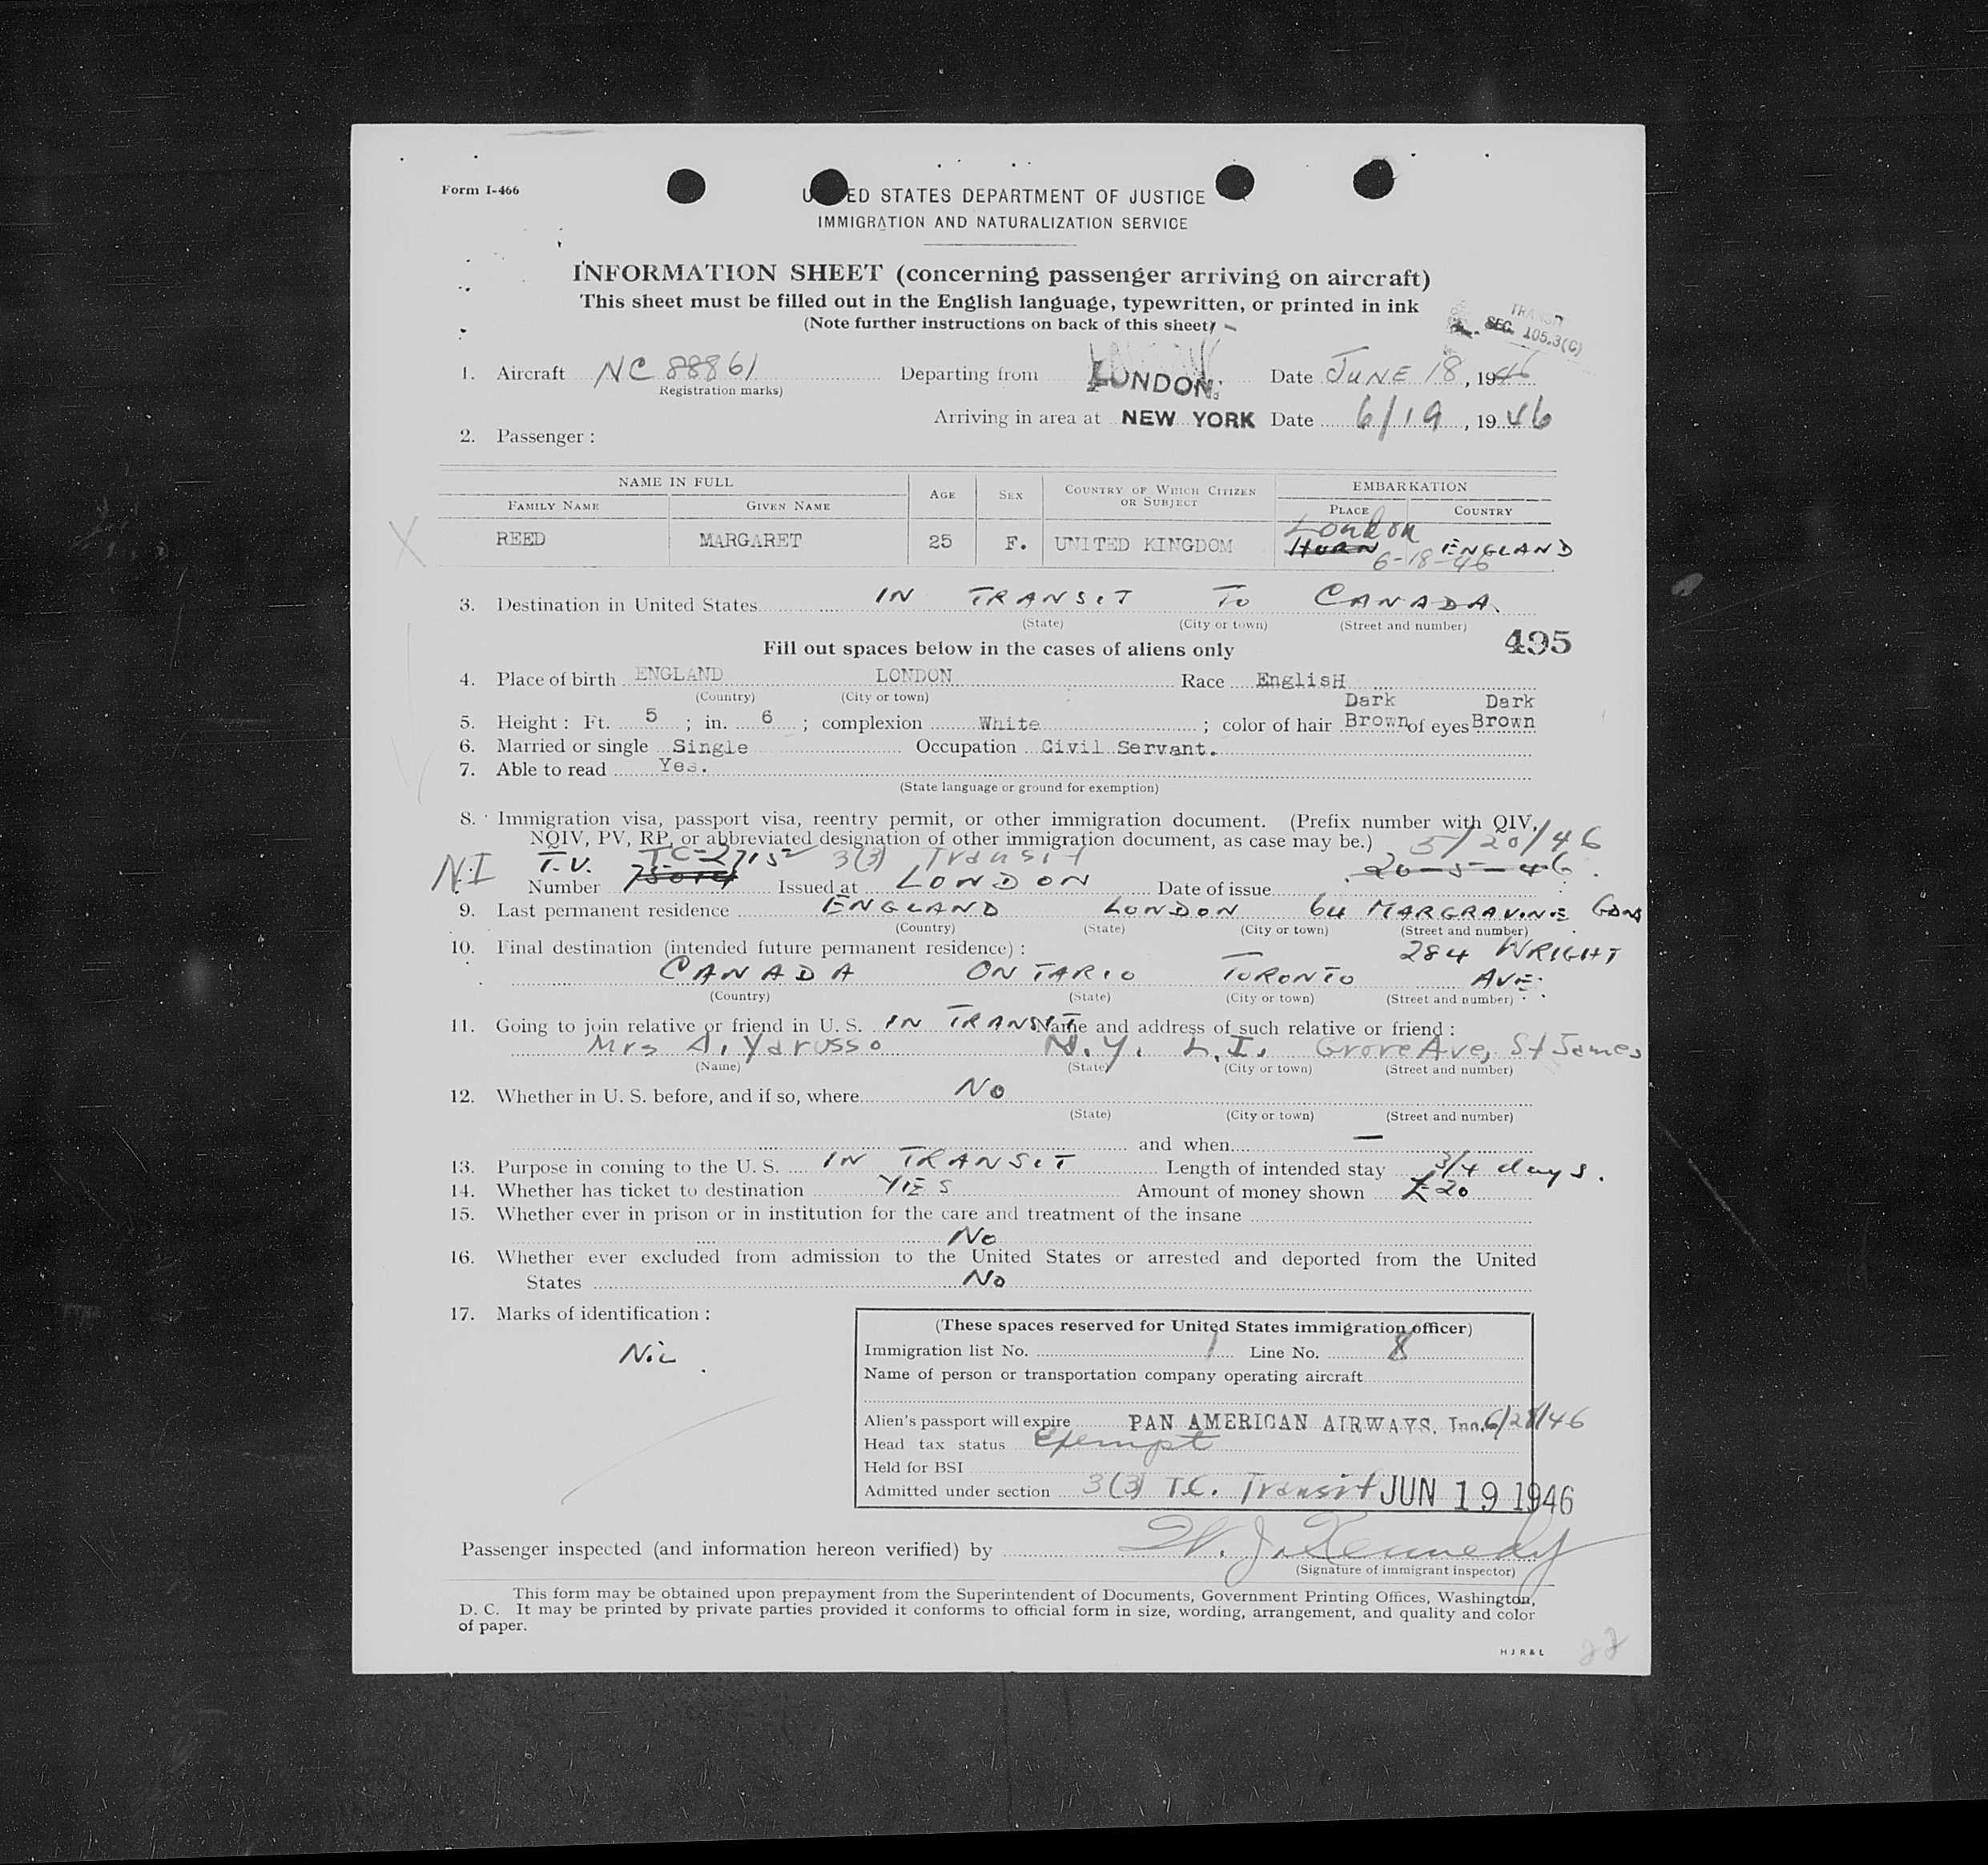 Form I-466
UNITED STATES DEPARTMENT OF JUSTICE
IMMIGRATION AND NATURALIZATION SERVICE
INFORMATION SHEET (concerning passenger arriving on aircraft)
This sheet must be filled out in the English language, typewritten, or printed in ink
(Note further instructions on back of this sheet)
TRANSIT
SEC. 105.3(C)
1. Aircraft NC 88861 Departing from LONDON. Date JUNE 18, 1946
(Registration marks)
Arriving in area at NEW YORK Date 6/19, 1946
2. Passenger:
NAME IN FULL AGE SEX COUNTRY OF WHICH CITIZEN OR SUBJECT EMBARKATION
FAMILY NAME GIVEN NAME PLACE COUNTRY
London
REED MARGARET 25 F. UNITED KINGDOM HURN ENGLAND
6-18-46
3. Destination in United States IN TRANSIT TO CANADA.
(State) (City or town) (Street and number)
495
Fill out spaces below in the cases of aliens only
4. Place of birth ENGLAND LONDON Race EnglisH
(Country) (City or town)
Dark Dark
5. Height: Ft. 5; in. 6; complexion White; color of hair Brown of eyes Brown
6. Married or single Single Occupation Civil Servant.
7. Able to read Yes.
(State language or ground for exemption)
8. Immigration visa, passport visa, reentry permit, or other immigration document. (Prefix number with QIV,
NQIV, PV, RP, or abbreviated designation of other immigration document, as case may be.) 5/20/46
NI T.V. TC-27152 3(3) Transit 20-5-46
Number Issued at LONDON Date of issue
9. Last permanent residence ENGLAND LONDON 64 MARGRAVINE GDNS
(Country) (State) (City or town) (Street and number)
10. Final destination (intended future permanent residence): 284 WRIGHT
CANADA ONTARIO TORONTO AVE.
(Country) (State) (City or town) (Street and number)
11. Going to join relative or friend in U. S. IN TRANSIT Name and address of such relative or friend:
Mrs A. Yarusso N.Y. L.I. Grove Ave, St James
(Name) (State) (City or town) (Street and number)
12. Whether in U. S. before, and if so, where No
(State) (City or town) (Street and number)
and when —
13. Purpose in coming to the U. S. IN TRANSIT Length of intended stay 3/4 days.
14. Whether has ticket to destination YES Amount of money shown £20
15. Whether ever in prison or in institution for the care and treatment of the insane
No
16. Whether ever excluded from admission to the United States or arrested and deported from the United
States No
17. Marks of identification:
Nil
(These spaces reserved for United States immigration officer)
Immigration list No. 1 Line No. 8
Name of person or transportation company operating aircraft
Alien's passport will expire PAN AMERICAN AIRWAYS, Inc. 6/28/46
Head tax status Exempt
Held for BSI
Admitted under section 3(3) T.C. Transit JUN 19 1946
Passenger inspected (and information hereon verified) by W. J. Kennedy
(Signature of immigrant inspector)
This form may be obtained upon prepayment from the Superintendent of Documents, Government Printing Offices, Washington,
D. C. It may be printed by private parties provided it conforms to official form in size, wording, arrangement, and quality and color
of paper.
H J R & L